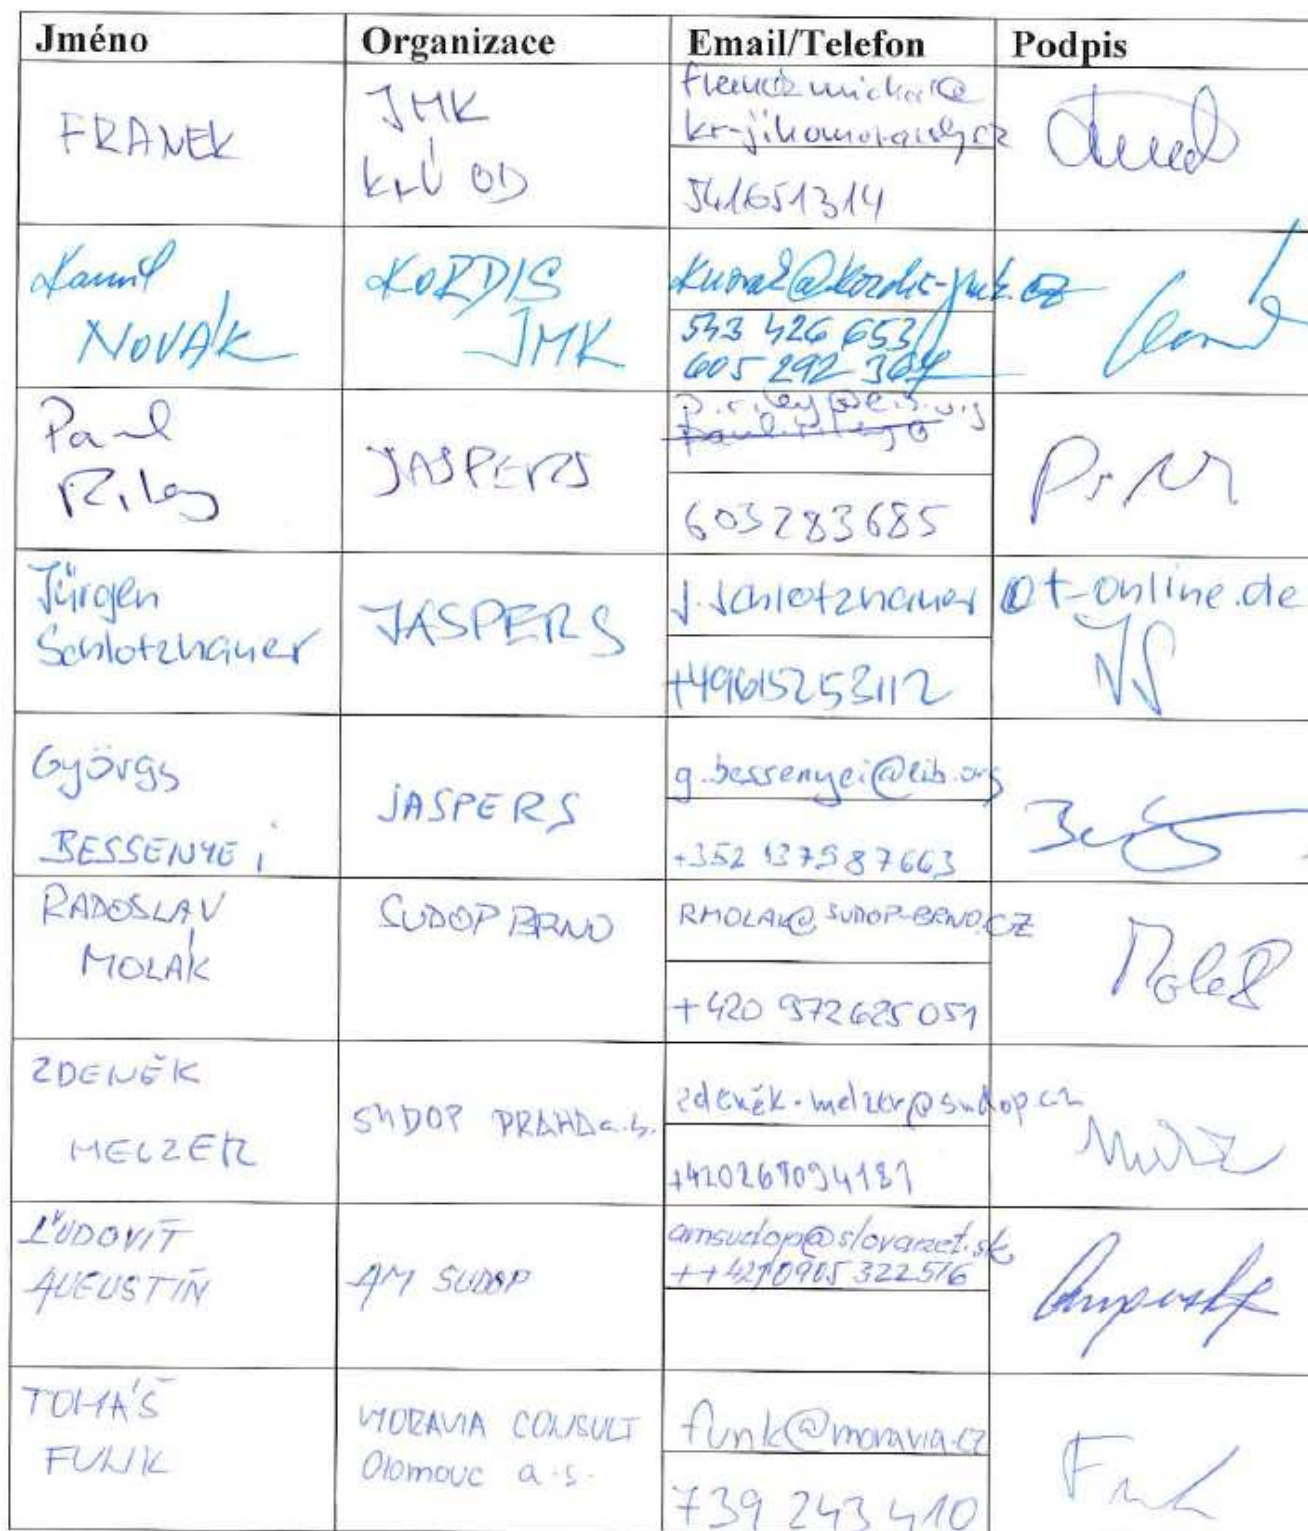 Jméno Organizace Email/Telefon Podpis
FRANEK
JMK
KrÚ OD
541651314
Kamil
NOVÁK
KORDIS
JMK
543 426 653
605 292 364
Paul
Riley
JASPERS
p.riley@eib.org
603283685
Jürgen
Schlotzhauer
JASPERS
j.schlotzhauer @t-online.de
+49615253112
JS
György
BESSENYEi
JASPERS
g.bessenyei@eib.org
+352 437987663
RADOSLAV
MOLÁK
SUDOP BRNO
RMOLAK@SUDOP-BRNO.CZ
+420 972625051
ZDENĚK
MELZER
SUDOP PRAHA a.s.
zdeněk.melzer@sudop.cz
+420267094181
ĽUDOVÍT
AUGUSTÍN
AM SUDOP
amsudop@slovanet.sk
TOMÁŠ
FUNK
MORAVIA CONSULT
Olomouc a.s.
funk@moravia.cz
739 243 410